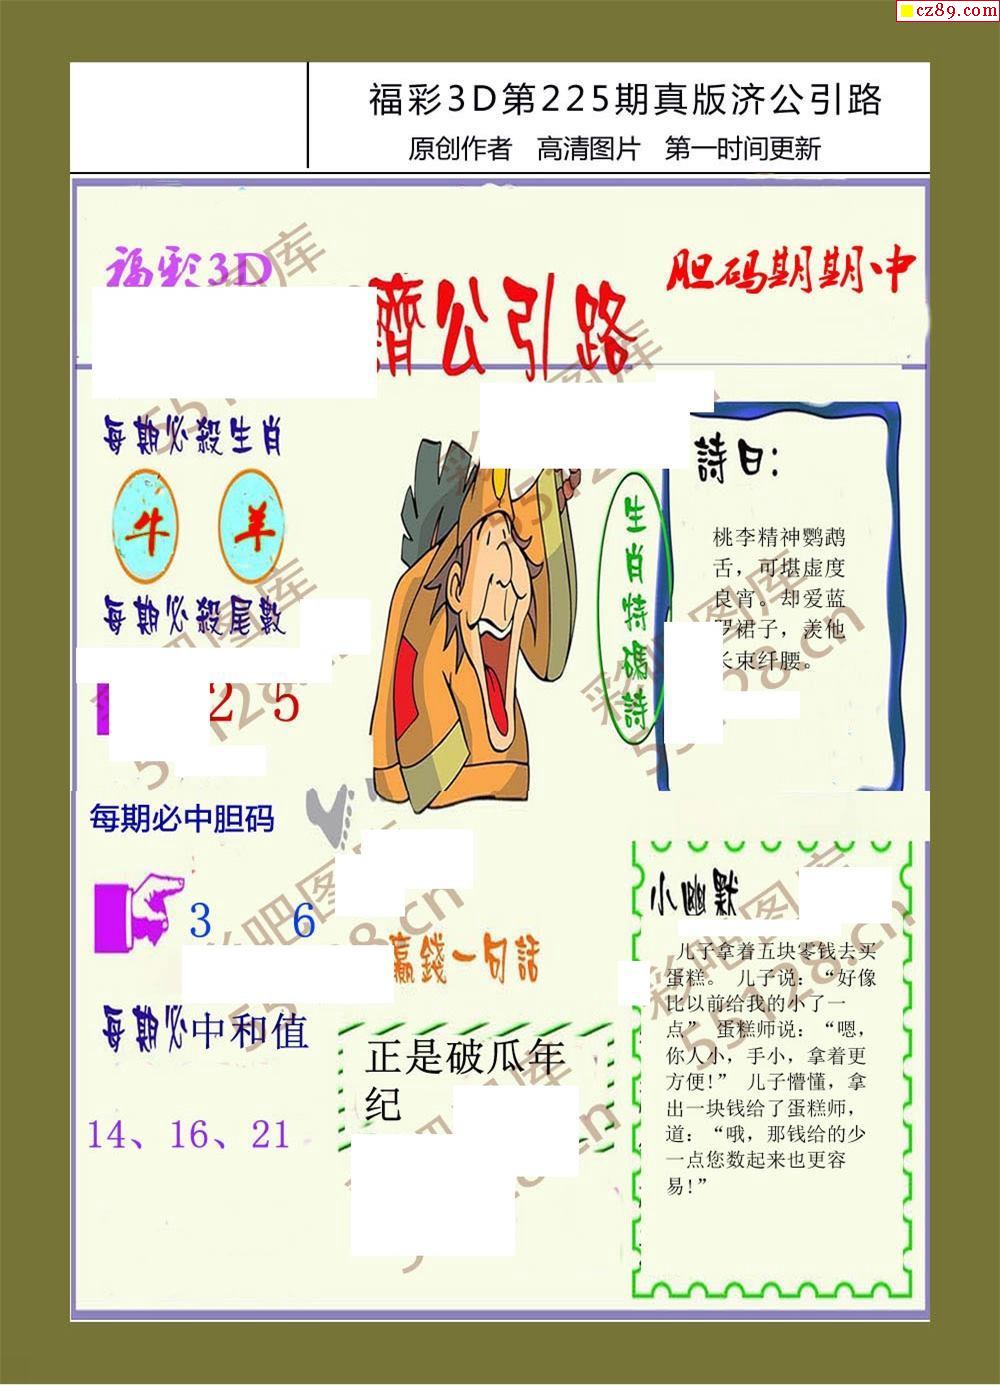 cz89.com
福彩3D第225期真版济公引路
原创作者 高清图片 第一时间更新
福彩3D
濟公引路
胆码期期中
每期必殺生肖
牛 羊
每期必殺尾數
2 5
每期必中胆码
3 6
每期必中和值
14、16、21
生肖特碼詩
詩曰：
桃李精神鹦鹉
舌，可堪虚度
良宵。却爱蓝
罗裙子，羡他
长束纤腰。
赢錢一句話
正是破瓜年
纪
小幽默
儿子拿着五块零钱去买
蛋糕。 儿子说：“好像
比以前给我的小了一
点” 蛋糕师说：“嗯，
你人小，手小，拿着更
方便!” 儿子懵懂，拿
出一块钱给了蛋糕师，
道：“哦，那钱给的少
一点您数起来也更容
易!”
彩吧图库
55128.cn